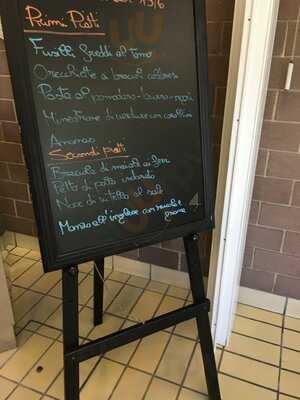 13/6
Primi Piatti
Fusilli freddi al tonno
Orecchiette ai broccoli
Pasta al pomodoro - burro - ragù
Minestrone di verdure con crostini
Ananas
Secondi piatti
Braciola di maiale ai ferri
Petto di pollo
Noce di vitello al sale
Manzo all'inglese con rucola e grana